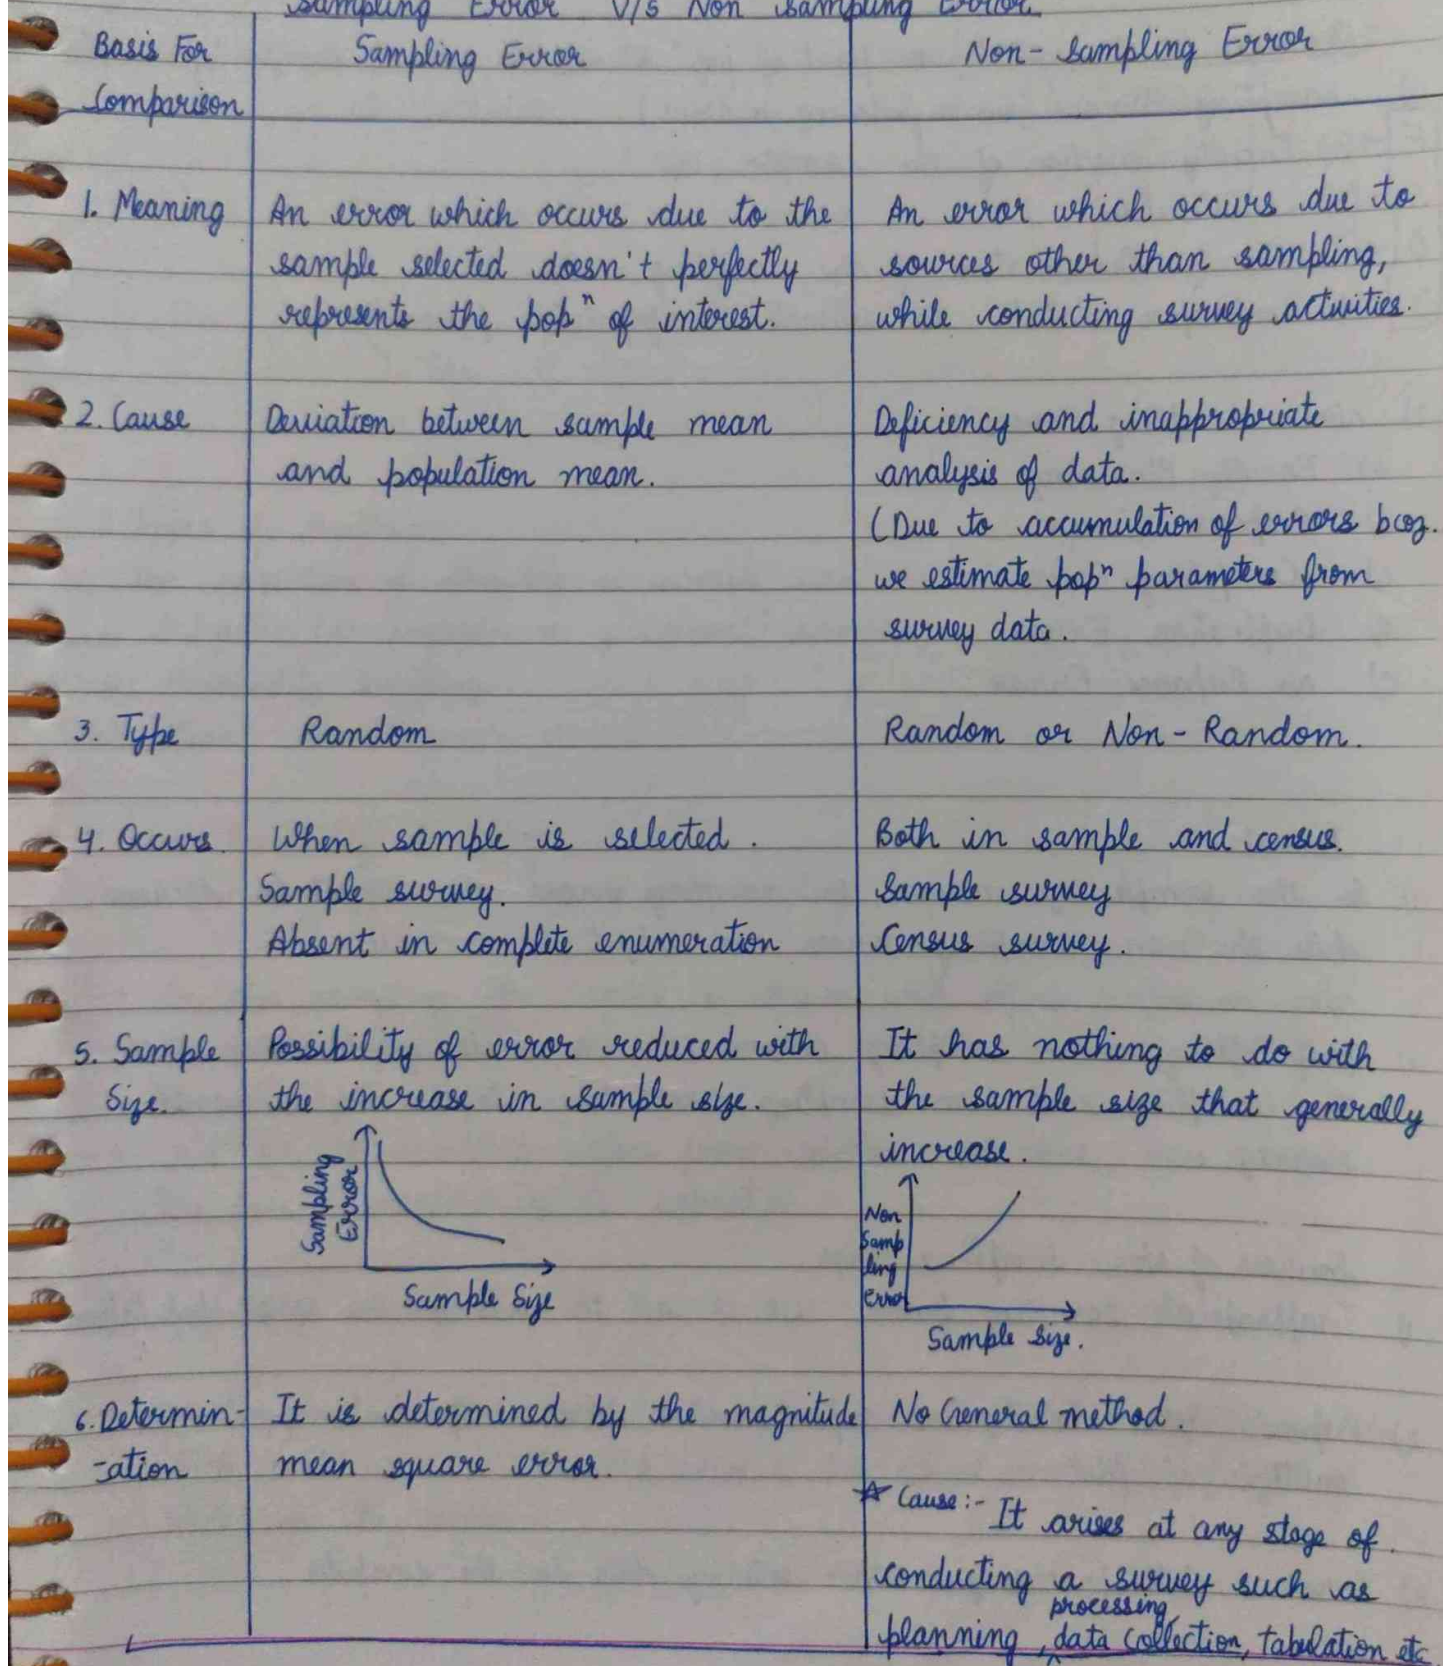 Sampling Error V/s Non Sampling Error
Basis For
Comparison
Sampling Error
Non-Sampling Error
1. Meaning
An error which occurs due to the
sample selected doesn't perfectly
represents the popⁿ of interest.
An error which occurs due to
sources other than sampling,
while conducting survey activities.
2. Cause
Deviation between sample mean
and population mean.
Deficiency and inappropriate
analysis of data.
(Due to accumulation of errors bcoz.
we estimate popⁿ parameters from
survey data.
3. Type
Random
Random or Non-Random.
4. Occurs
When sample is selected.
Sample survey.
Absent in complete enumeration
Both in sample and census.
Sample survey
Census survey.
5. Sample
Size.
Possibility of error reduced with
the increase in sample size.
Sampling
Error
Sample Size
It has nothing to do with
the sample size that generally
increase.
Non
Samp
ling
Error
Sample Size.
6. Determin-
-ation
It is determined by the magnitude
mean square error.
No General method.
☆ Cause:- It arises at any stage of
conducting a survey such as
processing,
planning, data collection, tabulation etc.